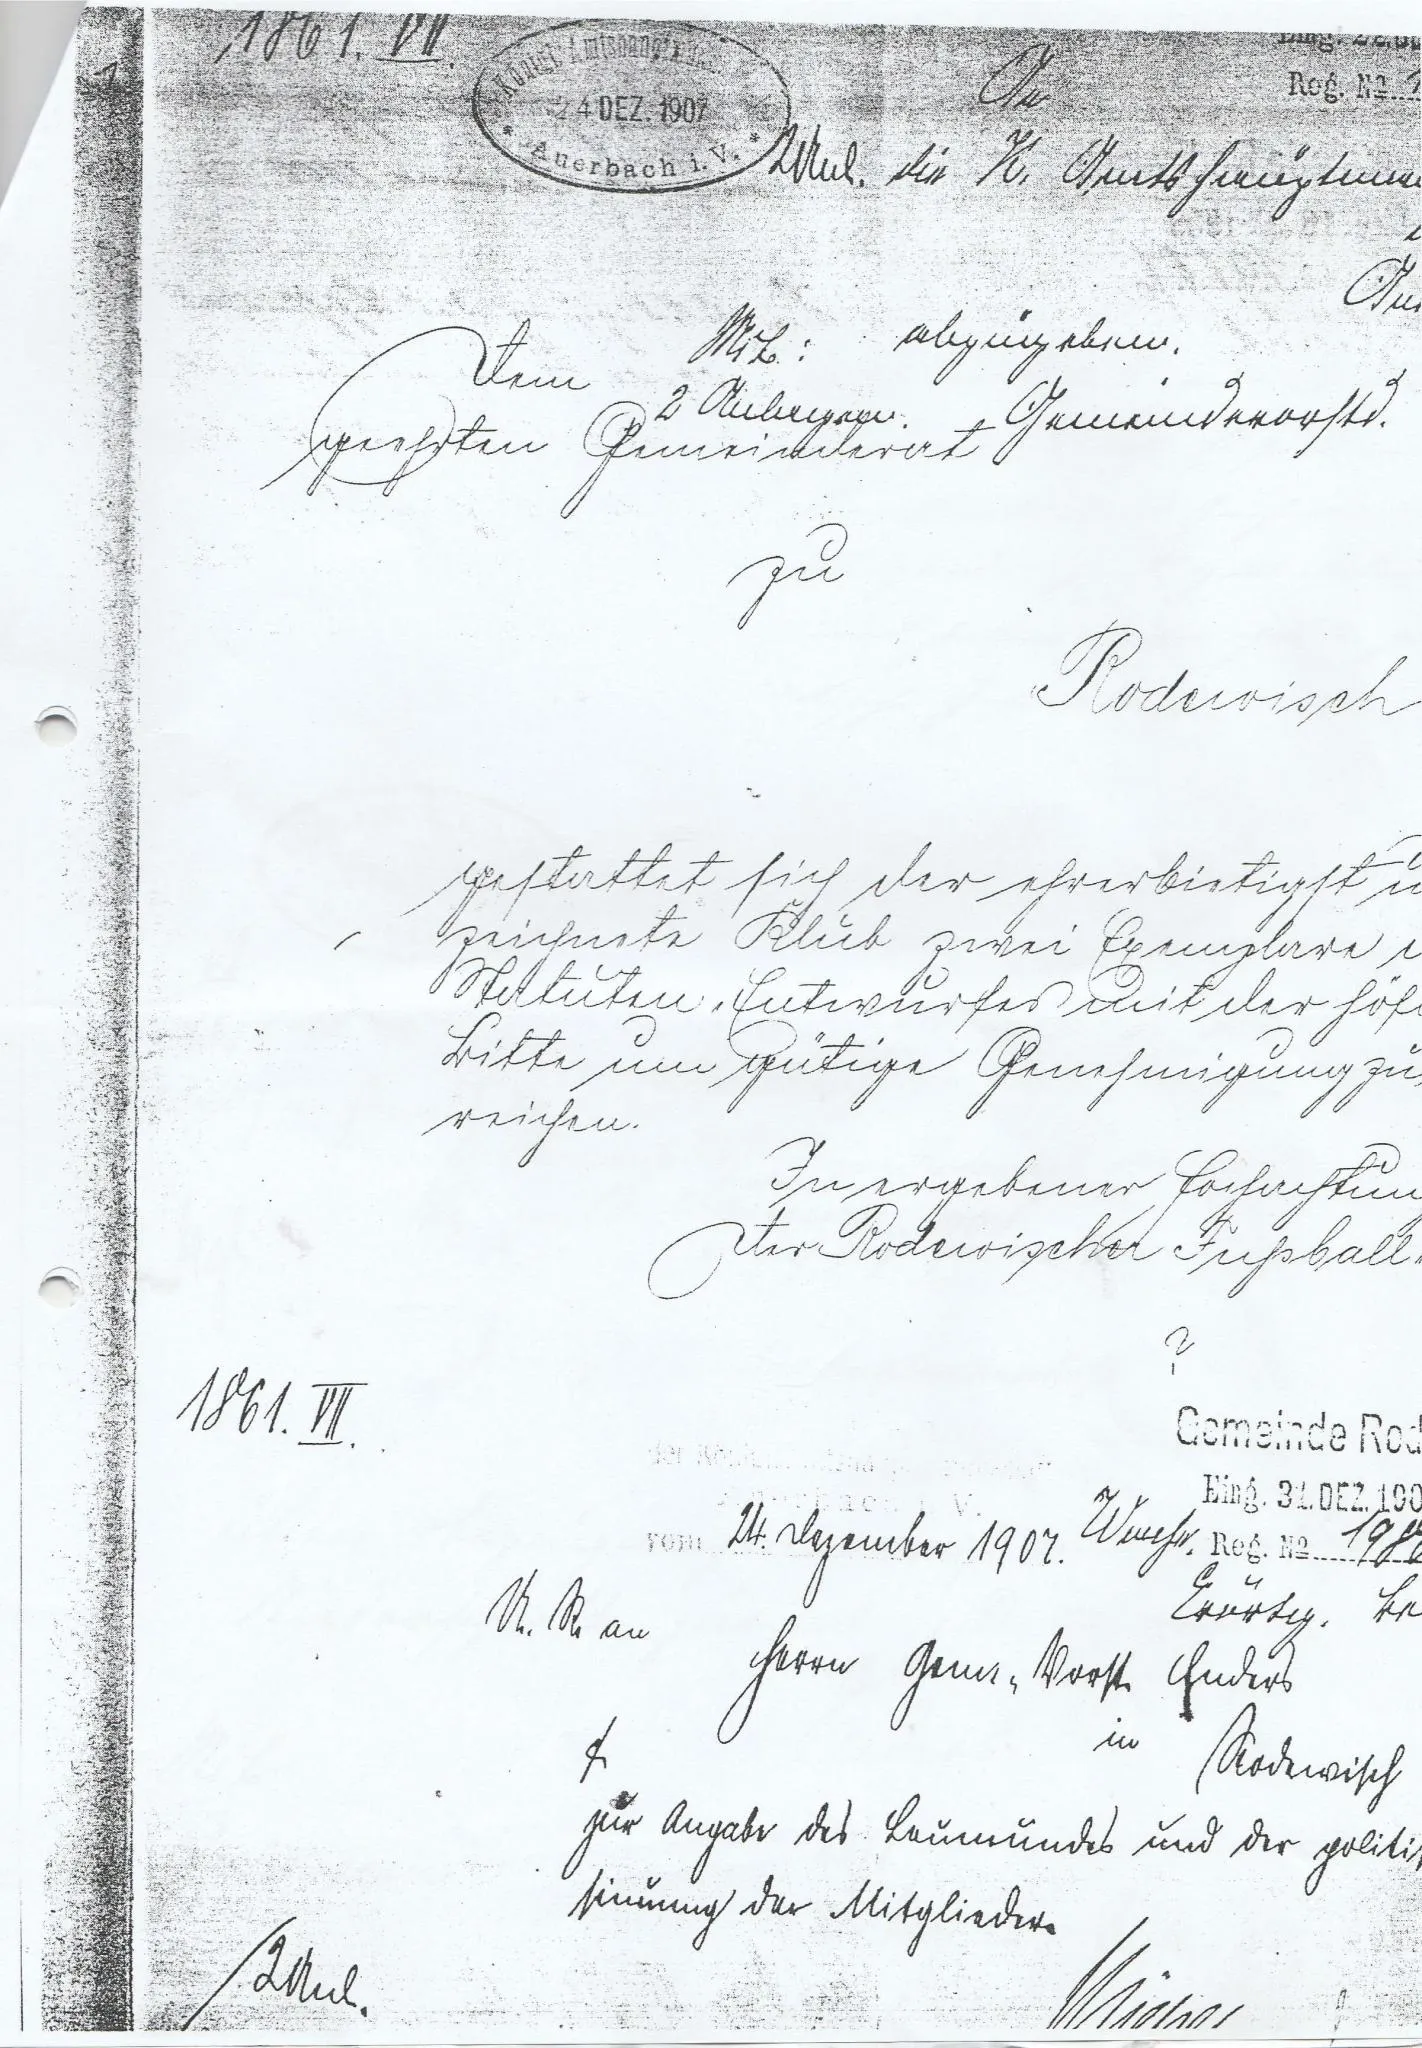 1861. VII.
Königl. Amtshaup
24 DEZ. 1907
* Auerbach i. V. *
Eing. 22.
Reg. №
An
2 Anl. die K. Amtshauptman
abzugeben.
Dem
2 Anl. Gemeindevorstd.
geehrten Gemeinderat
zu
Rodewisch
gestattet sich der ehrerbietigst u
zeichnete Klub zwei Exemplare
Statuten-Entwurfes mit der höf
Bitte um gütige Genehmigung zu
reichen.
In ergebener Hochachtun
Der Rodewischer Fußball-
?
1861. VII.
Gemeinde Rod
Eing. 31. DEZ. 190
Reg. № 198
vom 24. Dezember 1907.
Erörtg.
U. R. an
Herrn Gem.-Vorst. Enders
in Rodewisch
zur Angabe des Leumundes und der politi
sinnung der Mitglieder.
2 Anl.